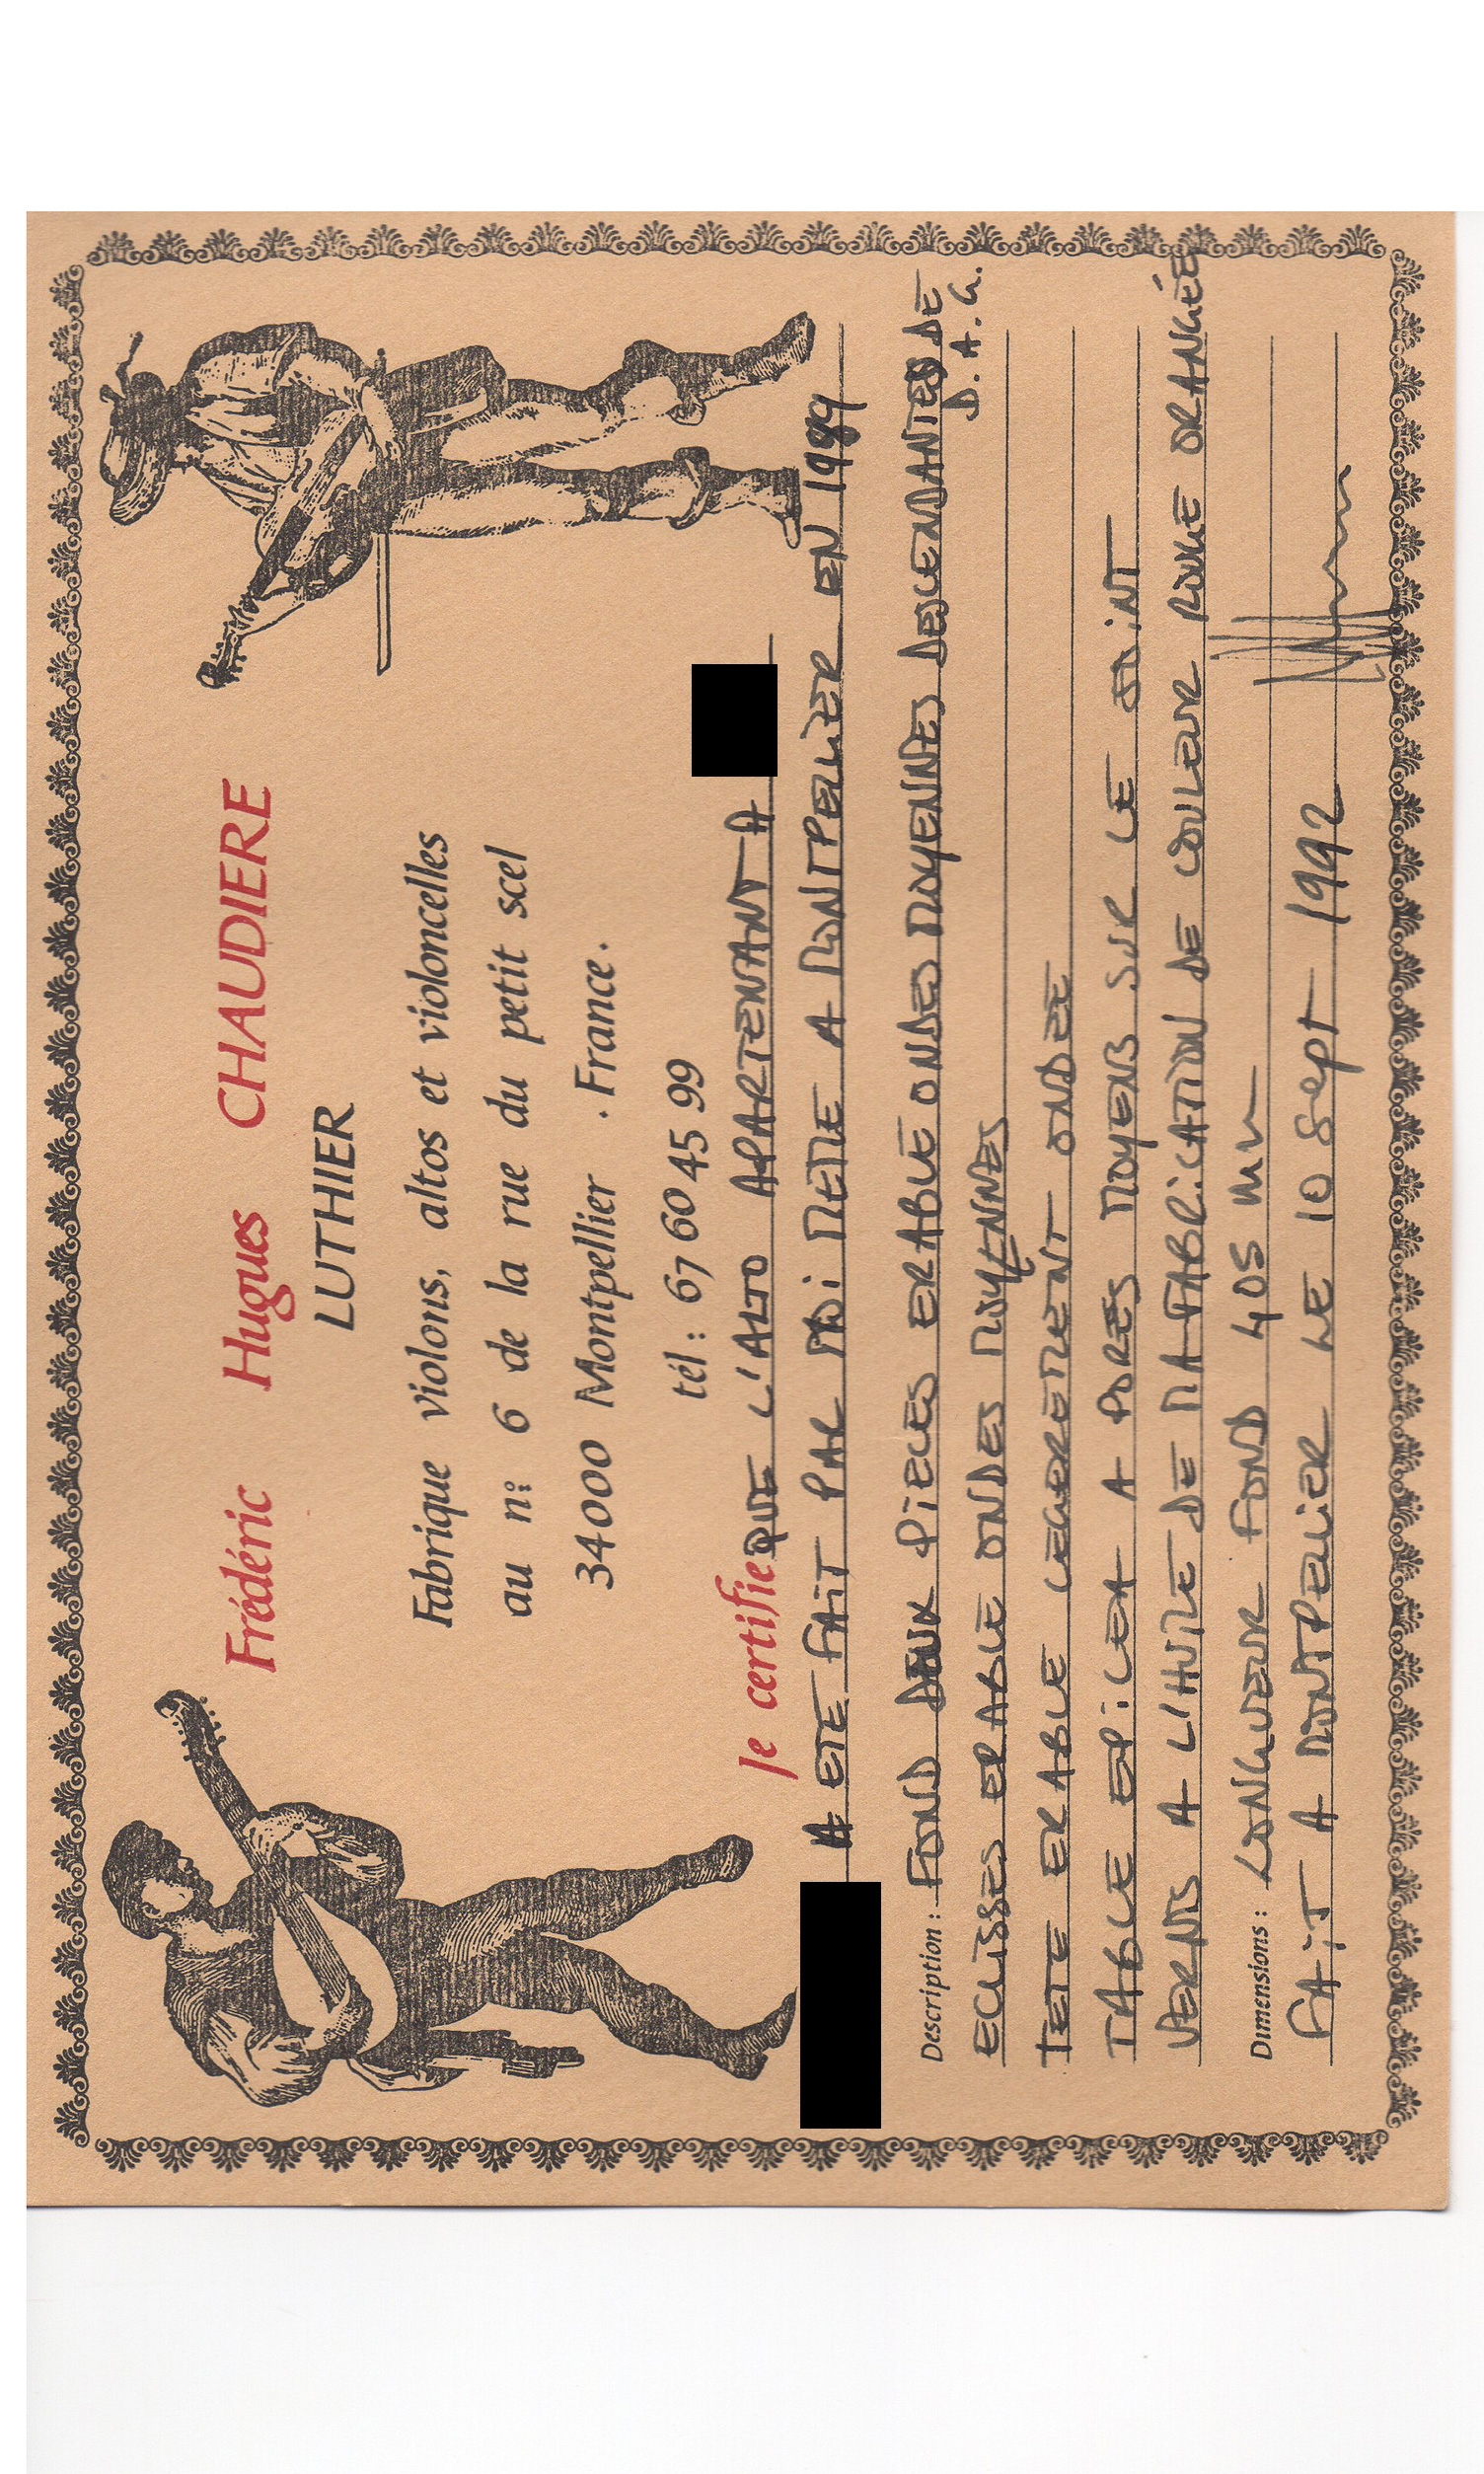 Frédéric Hugues CHAUDIERE
LUTHIER
Fabrique violons, altos et violoncelles
au n: 6 de la rue du petit scel
34000 Montpellier . France .
tél : 67 60 45 99
Je certifie QUE L'ALTO APARTENANT A
A ETE FAIT PAR MOI MEME A MONTPELLIER EN 1989
Description : FOND DEUX PIECES ERABLE ONDES MOYENNES DESCENDANTES DE
D. A. G.
ECLISSES ERABLE ONDES MOYENNES
TETE ERABLE LEGEREMENT ONDEE
TABLE EPICEA A PORES MOYENS SUR LE JOINT
VERNIS A L'HUILE DE MA FABRICATION DE COULEUR ROUGE ORANGÉE
Dimensions : LONGUEUR FOND 405 mm
FAIT A MONTPELIER LE 10 Sept 1992